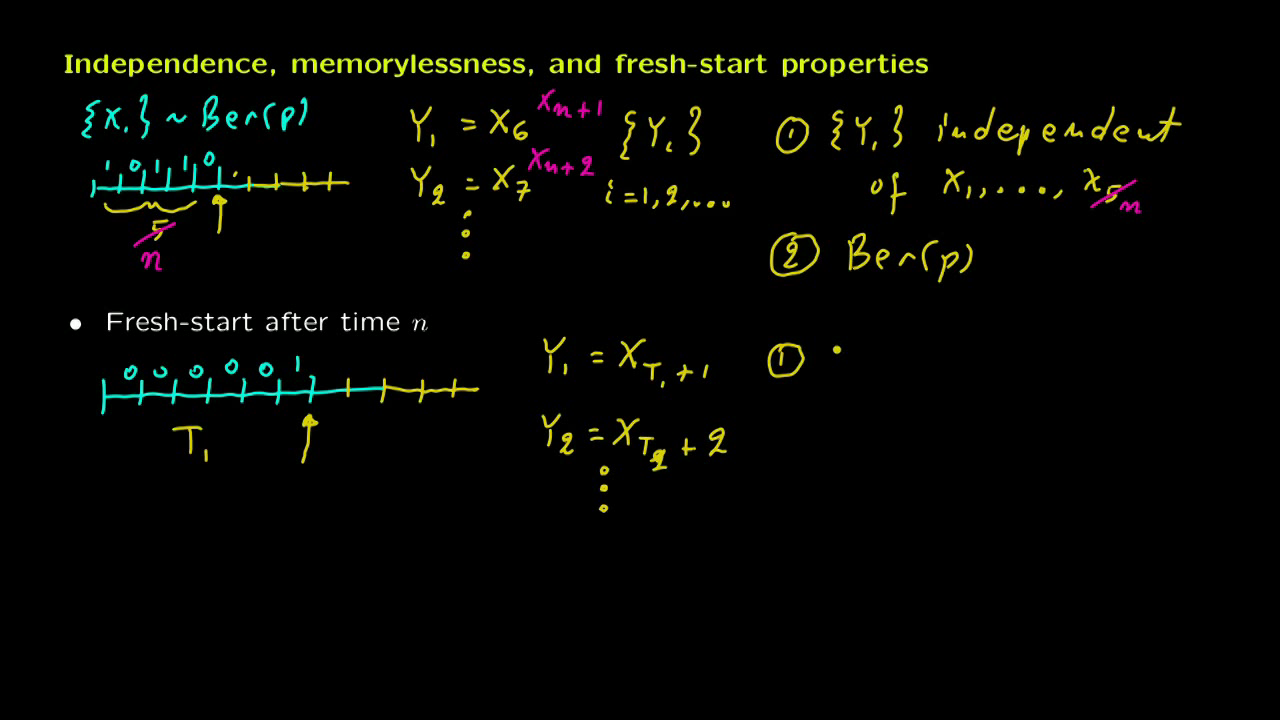 Independence, memorylessness, and fresh-start properties
{Xi} ~ Ber(p)
1 0 1 1 0
5 n
Y1 = X6 Xn+1
Y2 = X7 Xn+2
{Yi}
i = 1, 2, ...
① {Yi} independent
of X1, ..., X5 n
② Ber(p)
• Fresh-start after time n
0 0 0 0 0 1
T1
Y1 = XT1 + 1
Y2 = XT2 + 2
①